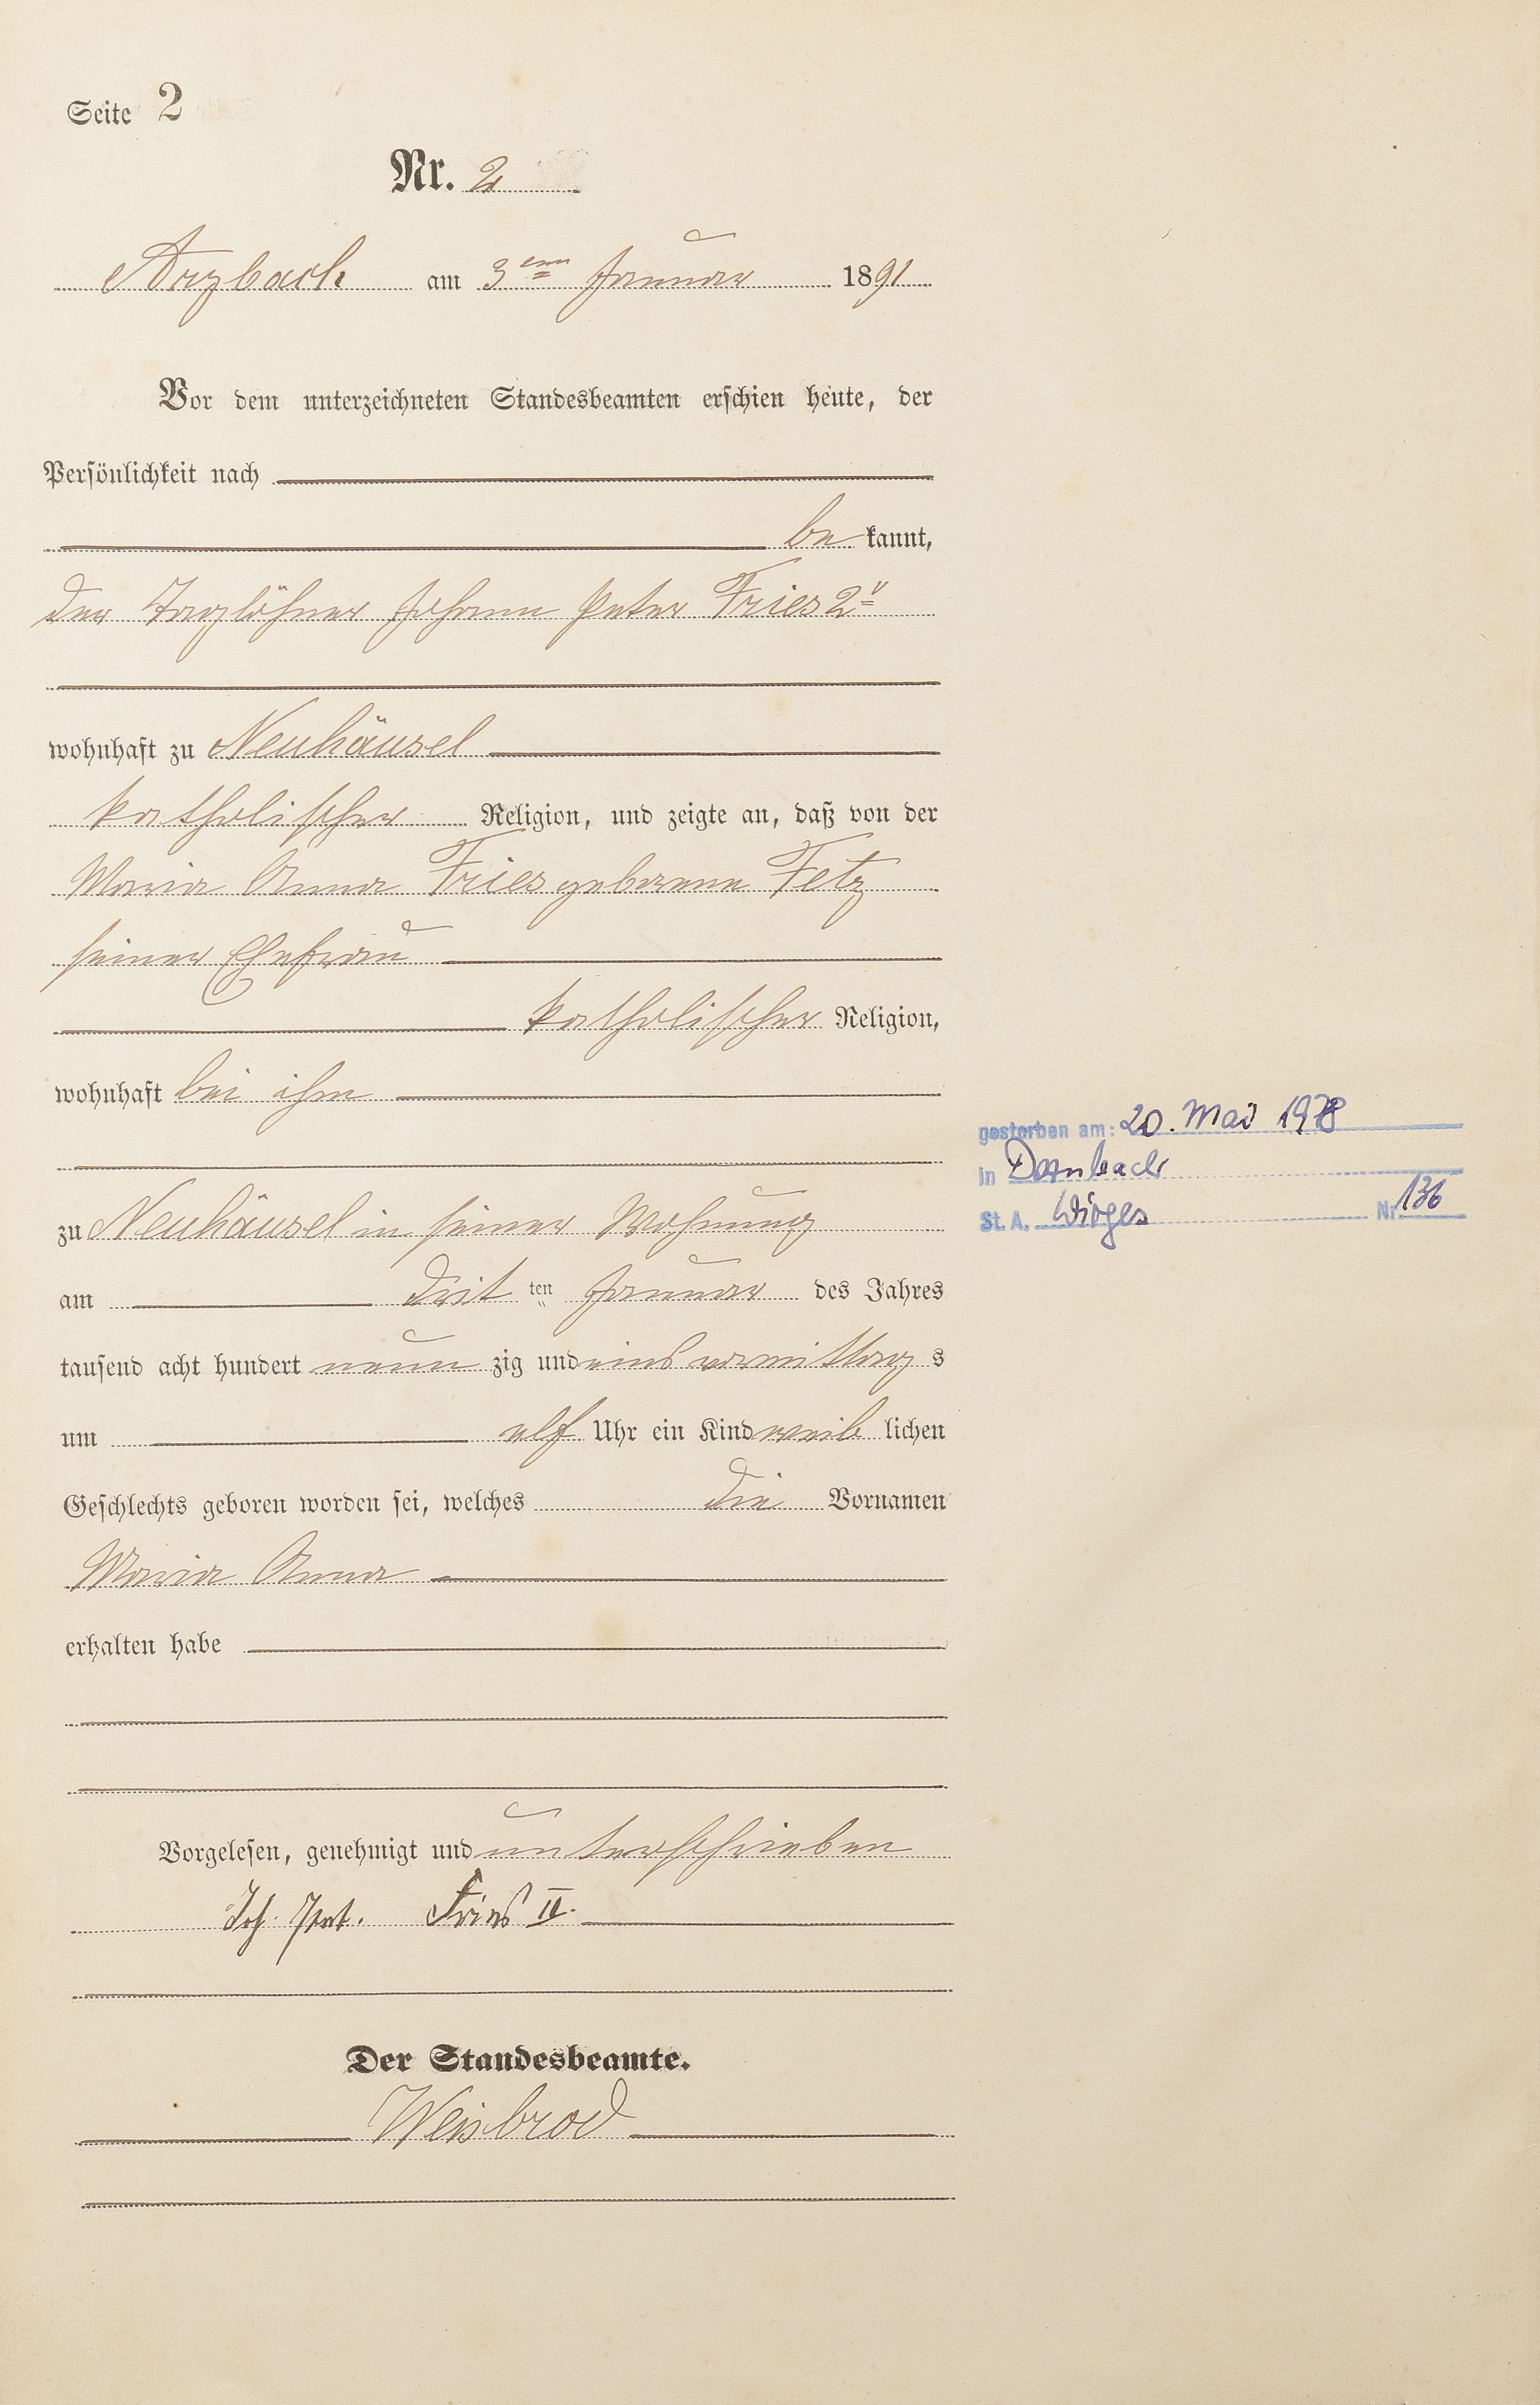 Seite 2
Nr. 2
Arzbach am 3ten Januar 1891
Vor dem unterzeichneten Standesbeamten erschien heute, der
Persönlichkeit nach
be kannt,
der Taglöhner Johann Peter Fries 2r
wohnhaft zu Neuhäusel
katholischer Religion, und zeigte an, daß von der
Maria Anna Fries geborene Fetz
seiner Ehefrau
katholischer Religion,
wohnhaft bei ihm
gestorben am: 20. Mai 1978
in Dernbach
St. A. Wirges Nr. 136
zu Neuhäusel in seiner Wohnung
am drit ten Januar des Jahres
tausend acht hundert neun zig und eins vormittag s
um elf Uhr ein Kind weib lichen
Geschlechts geboren worden sei, welches die Vornamen
Maria Anna
erhalten habe
Vorgelesen, genehmigt und unterschrieben
Joh. Pet. Fries II.
Der Standesbeamte.
Weisbrod